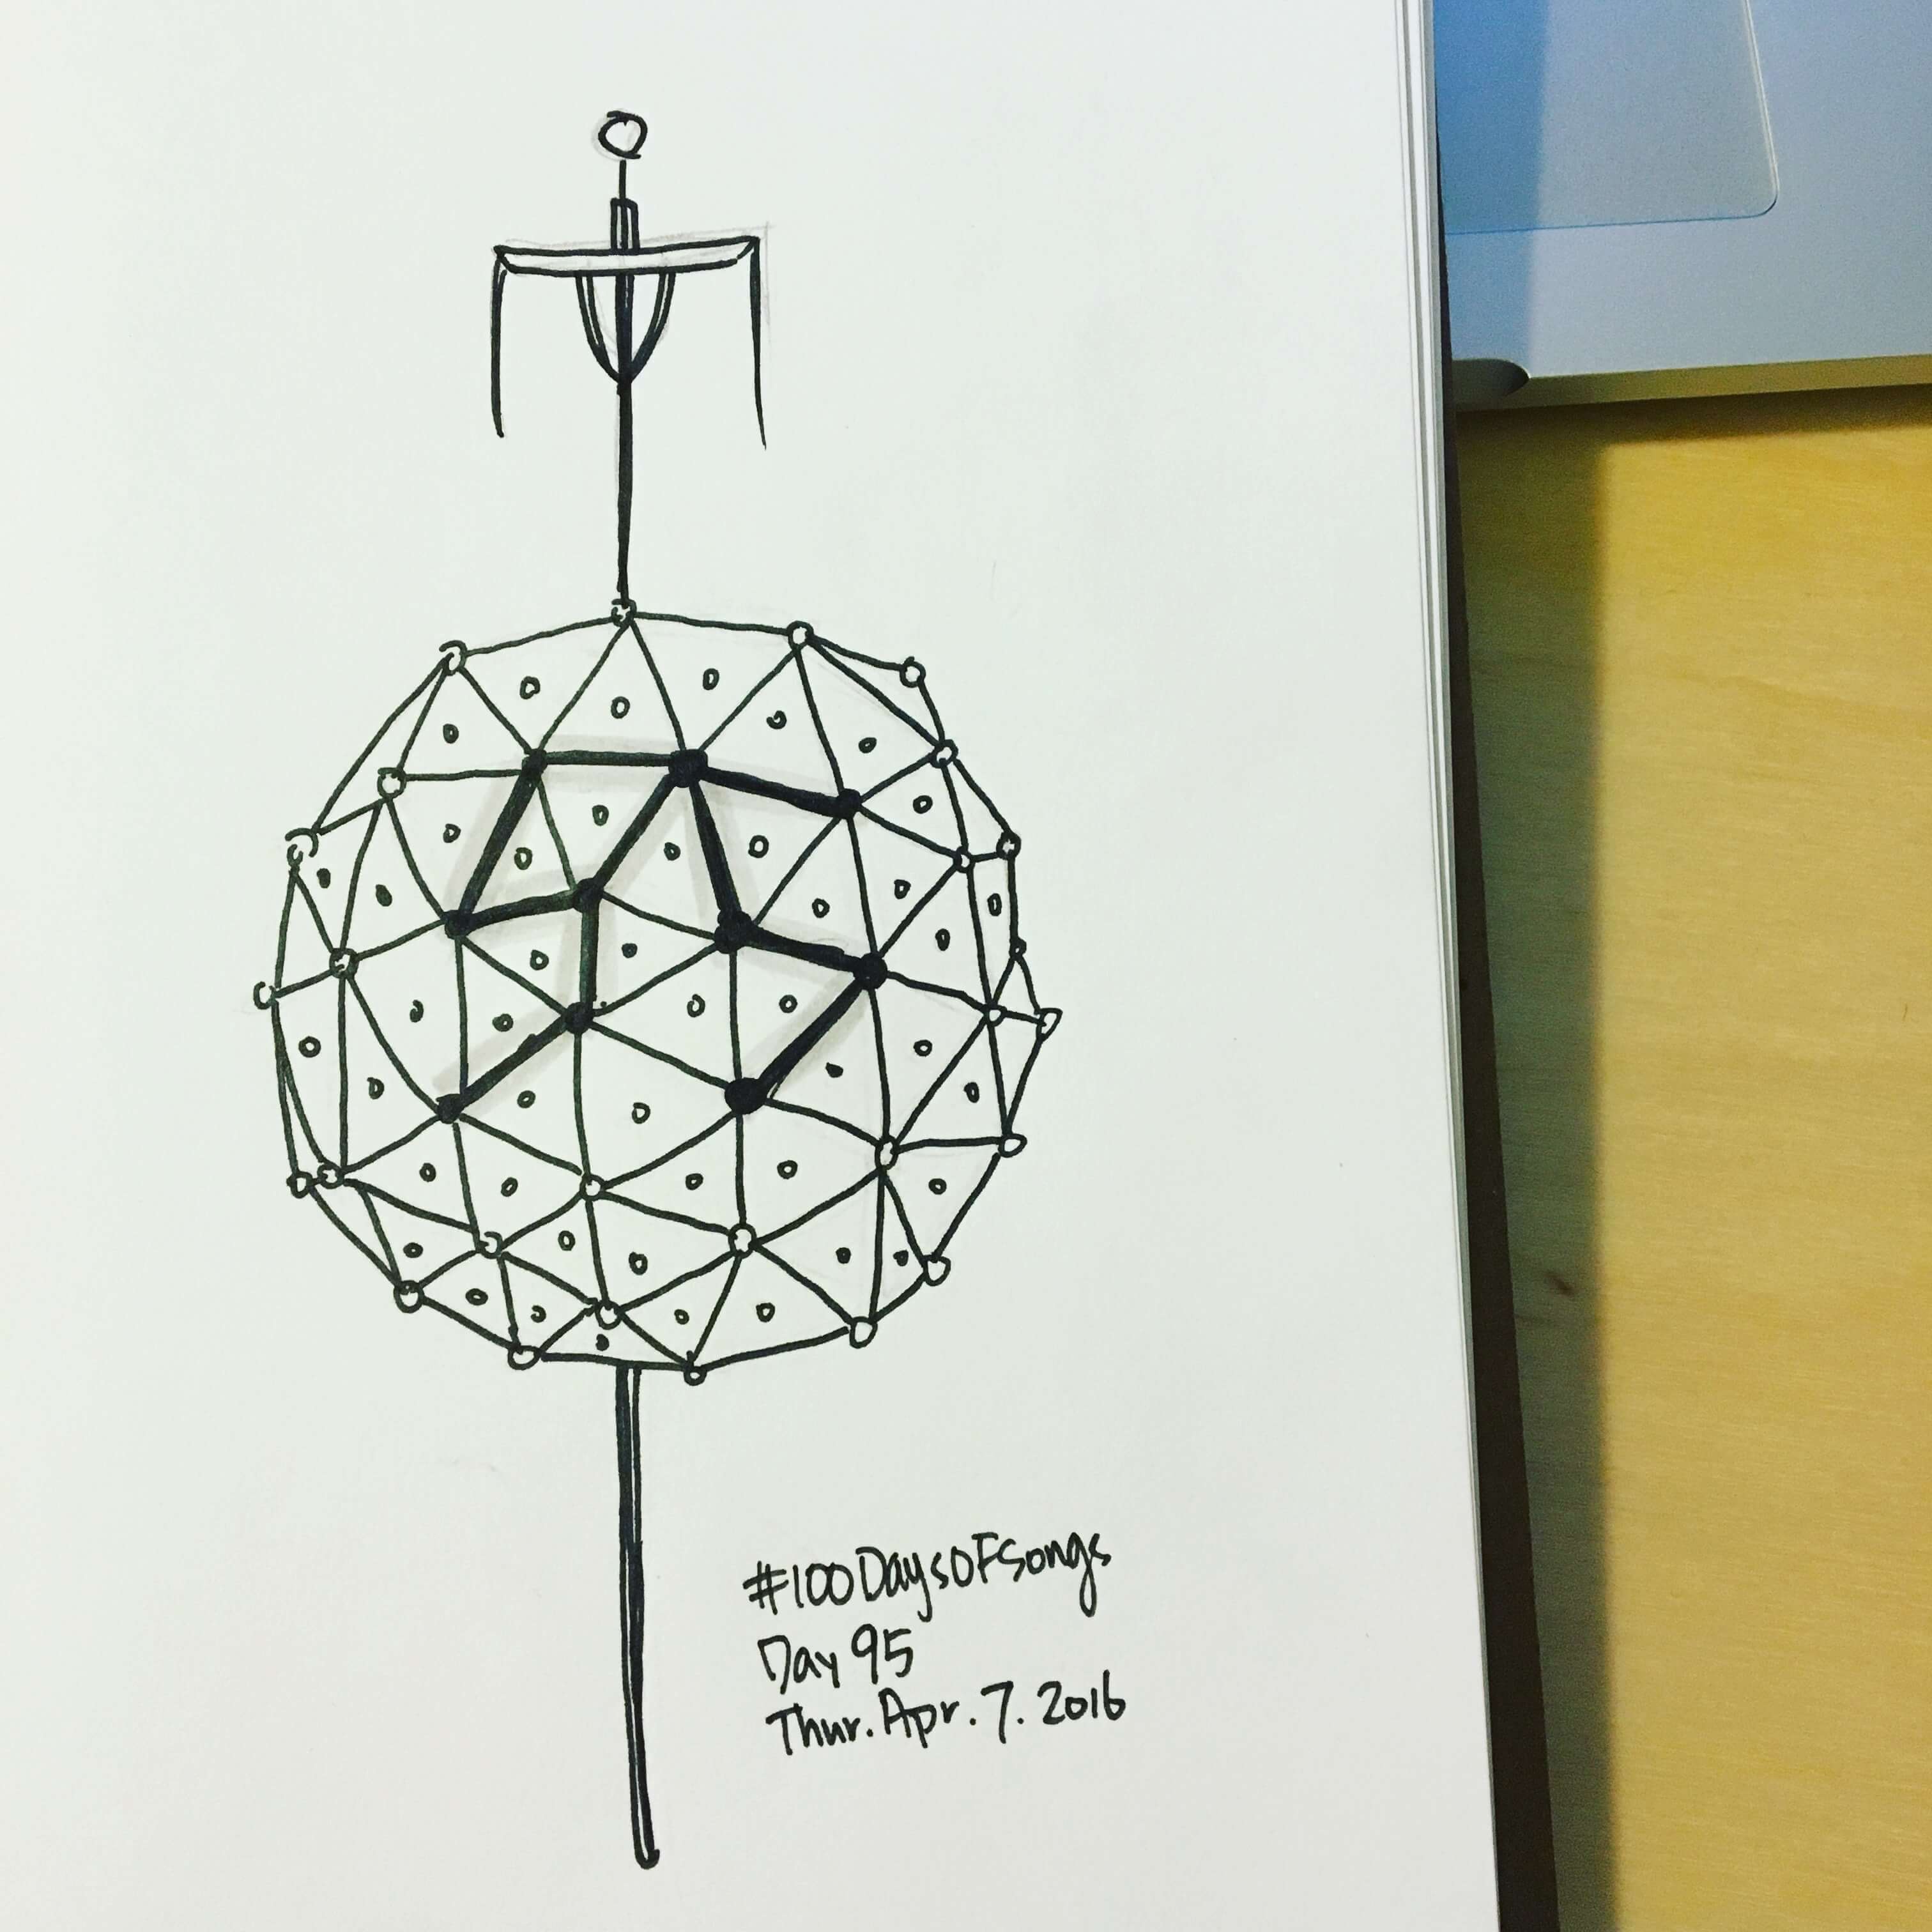 #100DaysOFSongs
Day 95
Thur. Apr. 7. 2016